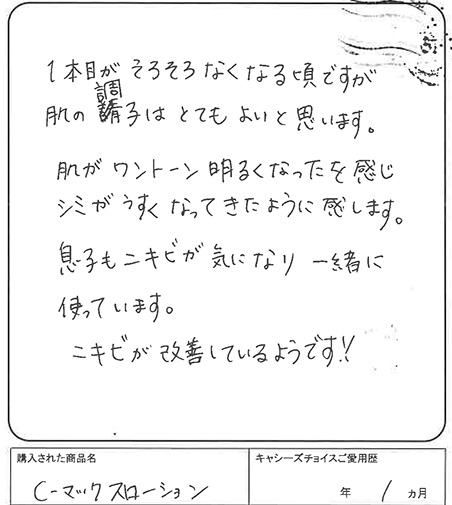 1本目が そろそろ なくなる頃ですが
肌の 調子は とても よいと 思います。
肌が ワントーン 明るくなったを 感じ
シミが うすく なってきたように 感じます。
息子も ニキビが 気になり 一緒に
使っています。
ニキビが 改善しているようです!!
購入された商品名
キャシーズチョイスご愛用歴
C-マックスローション
年 1 ヵ月